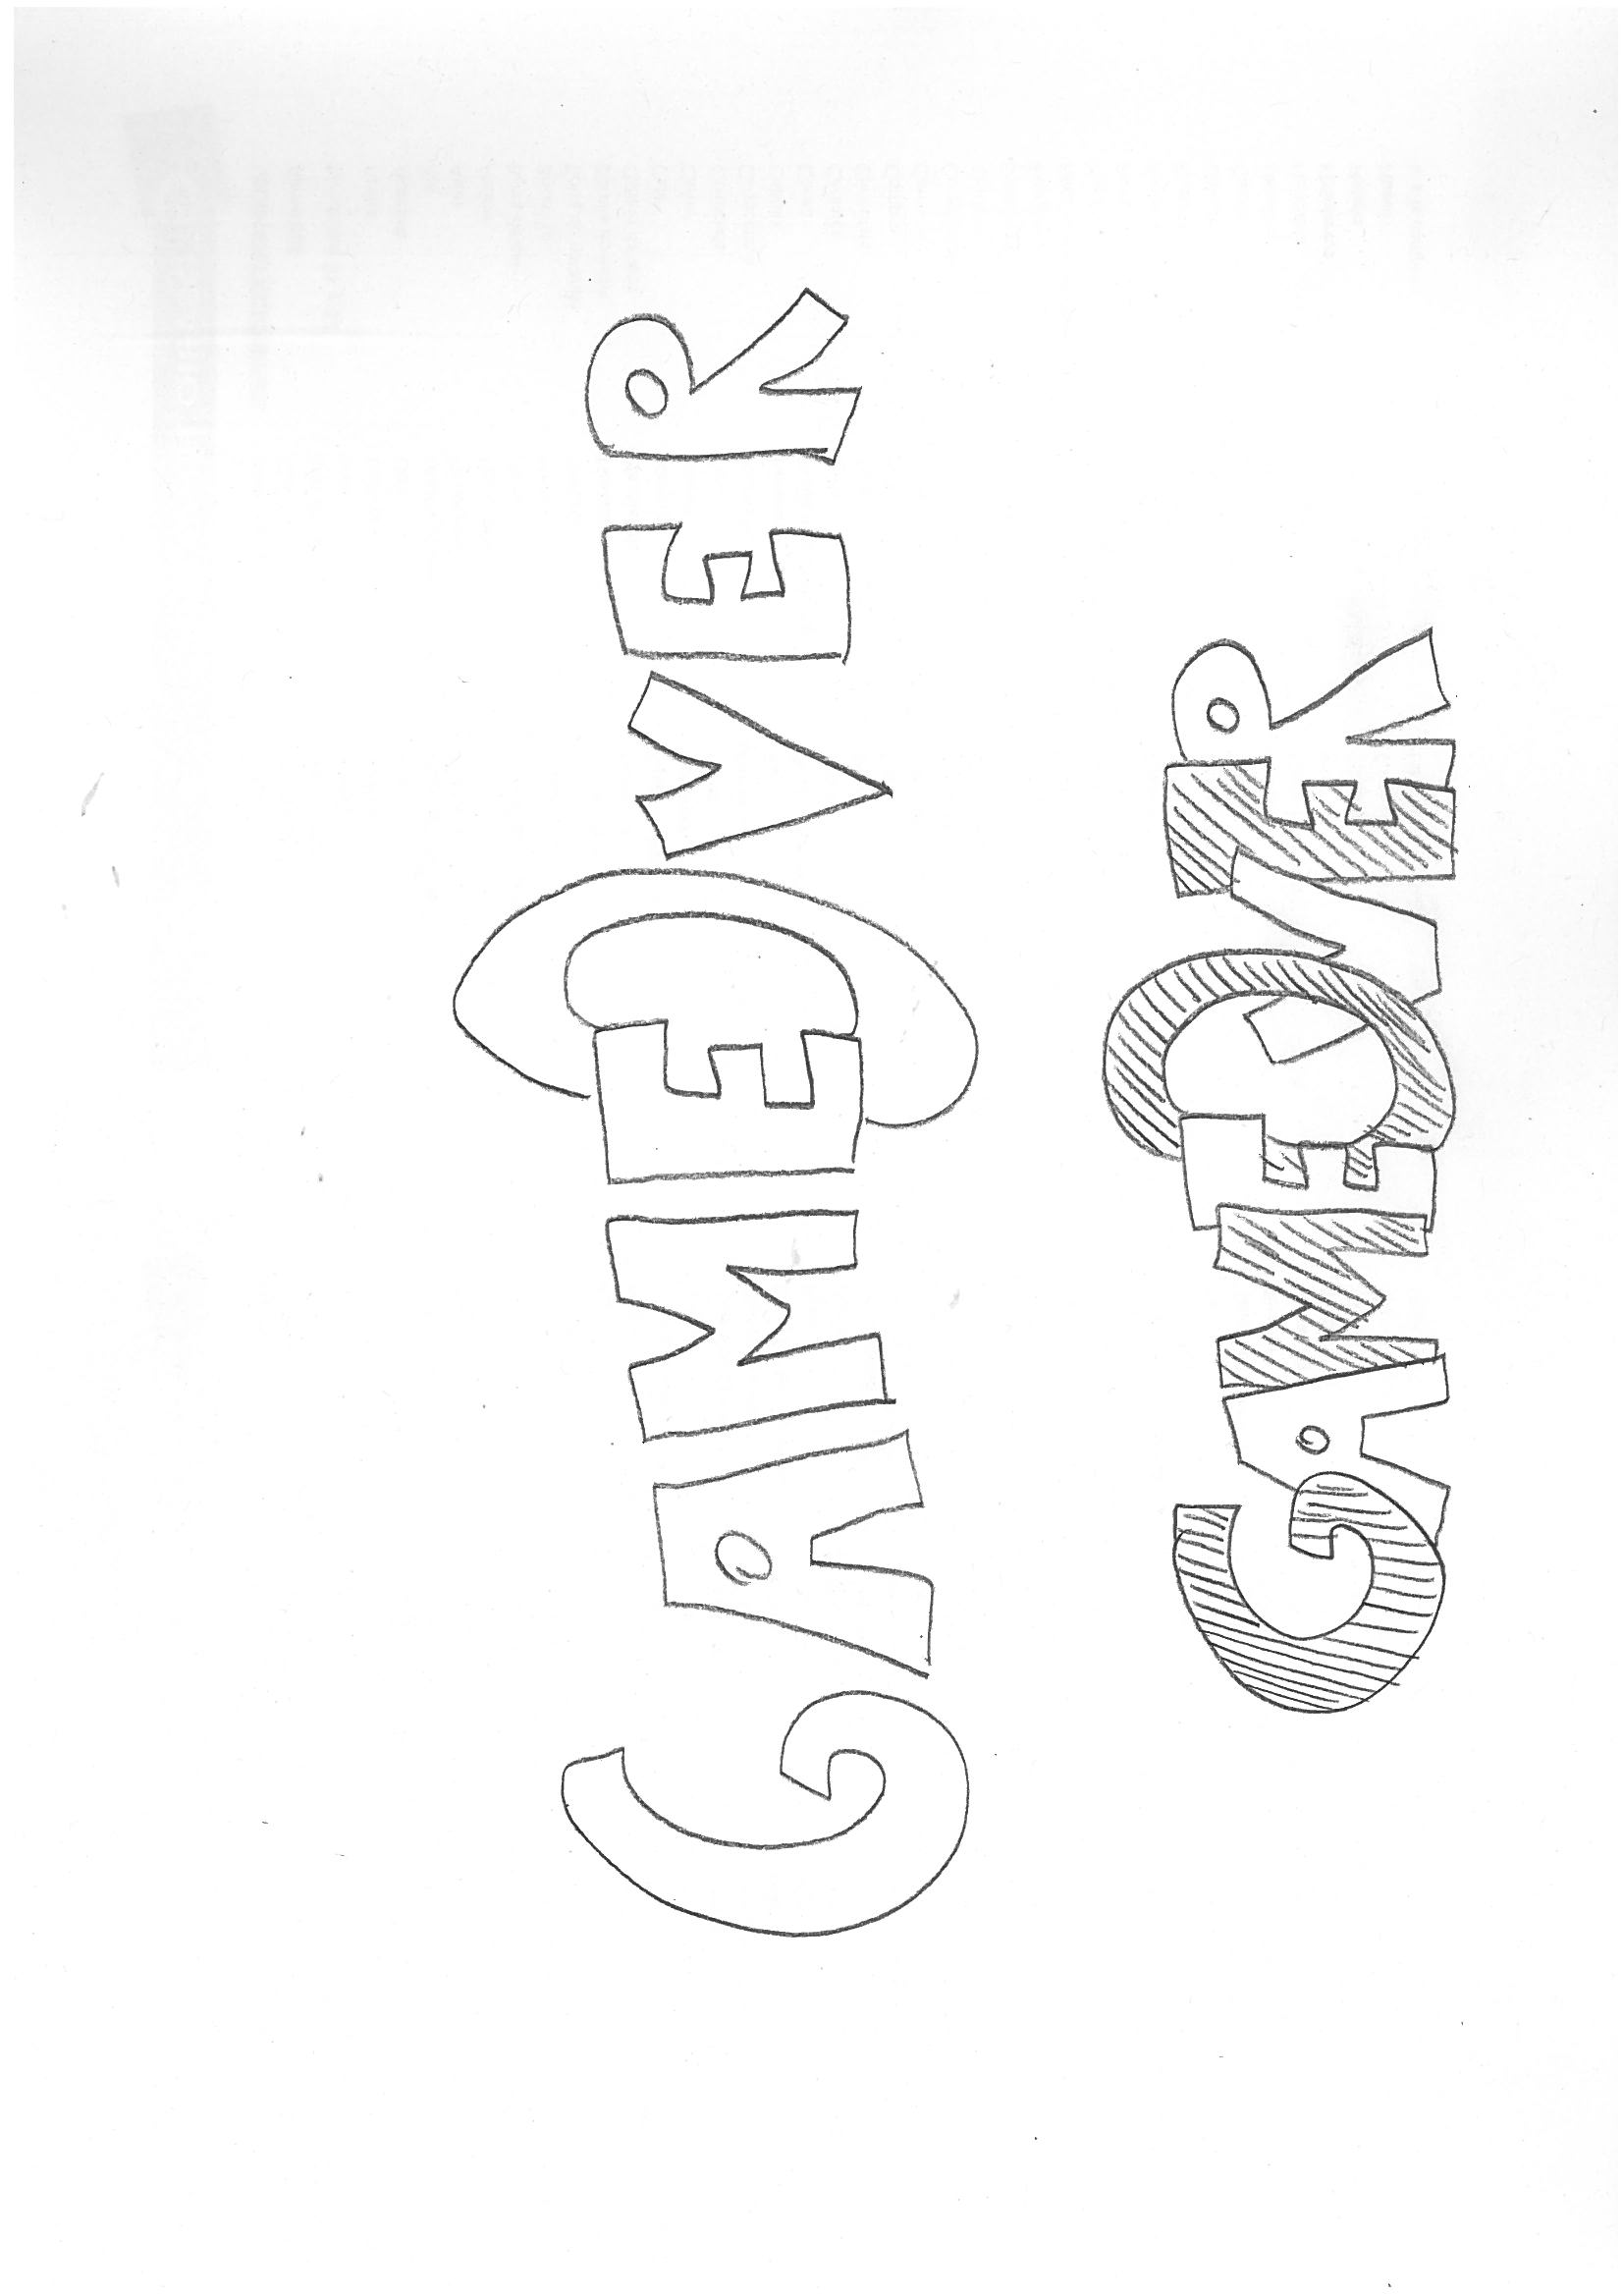 GAMEOVER
GAMEOVER